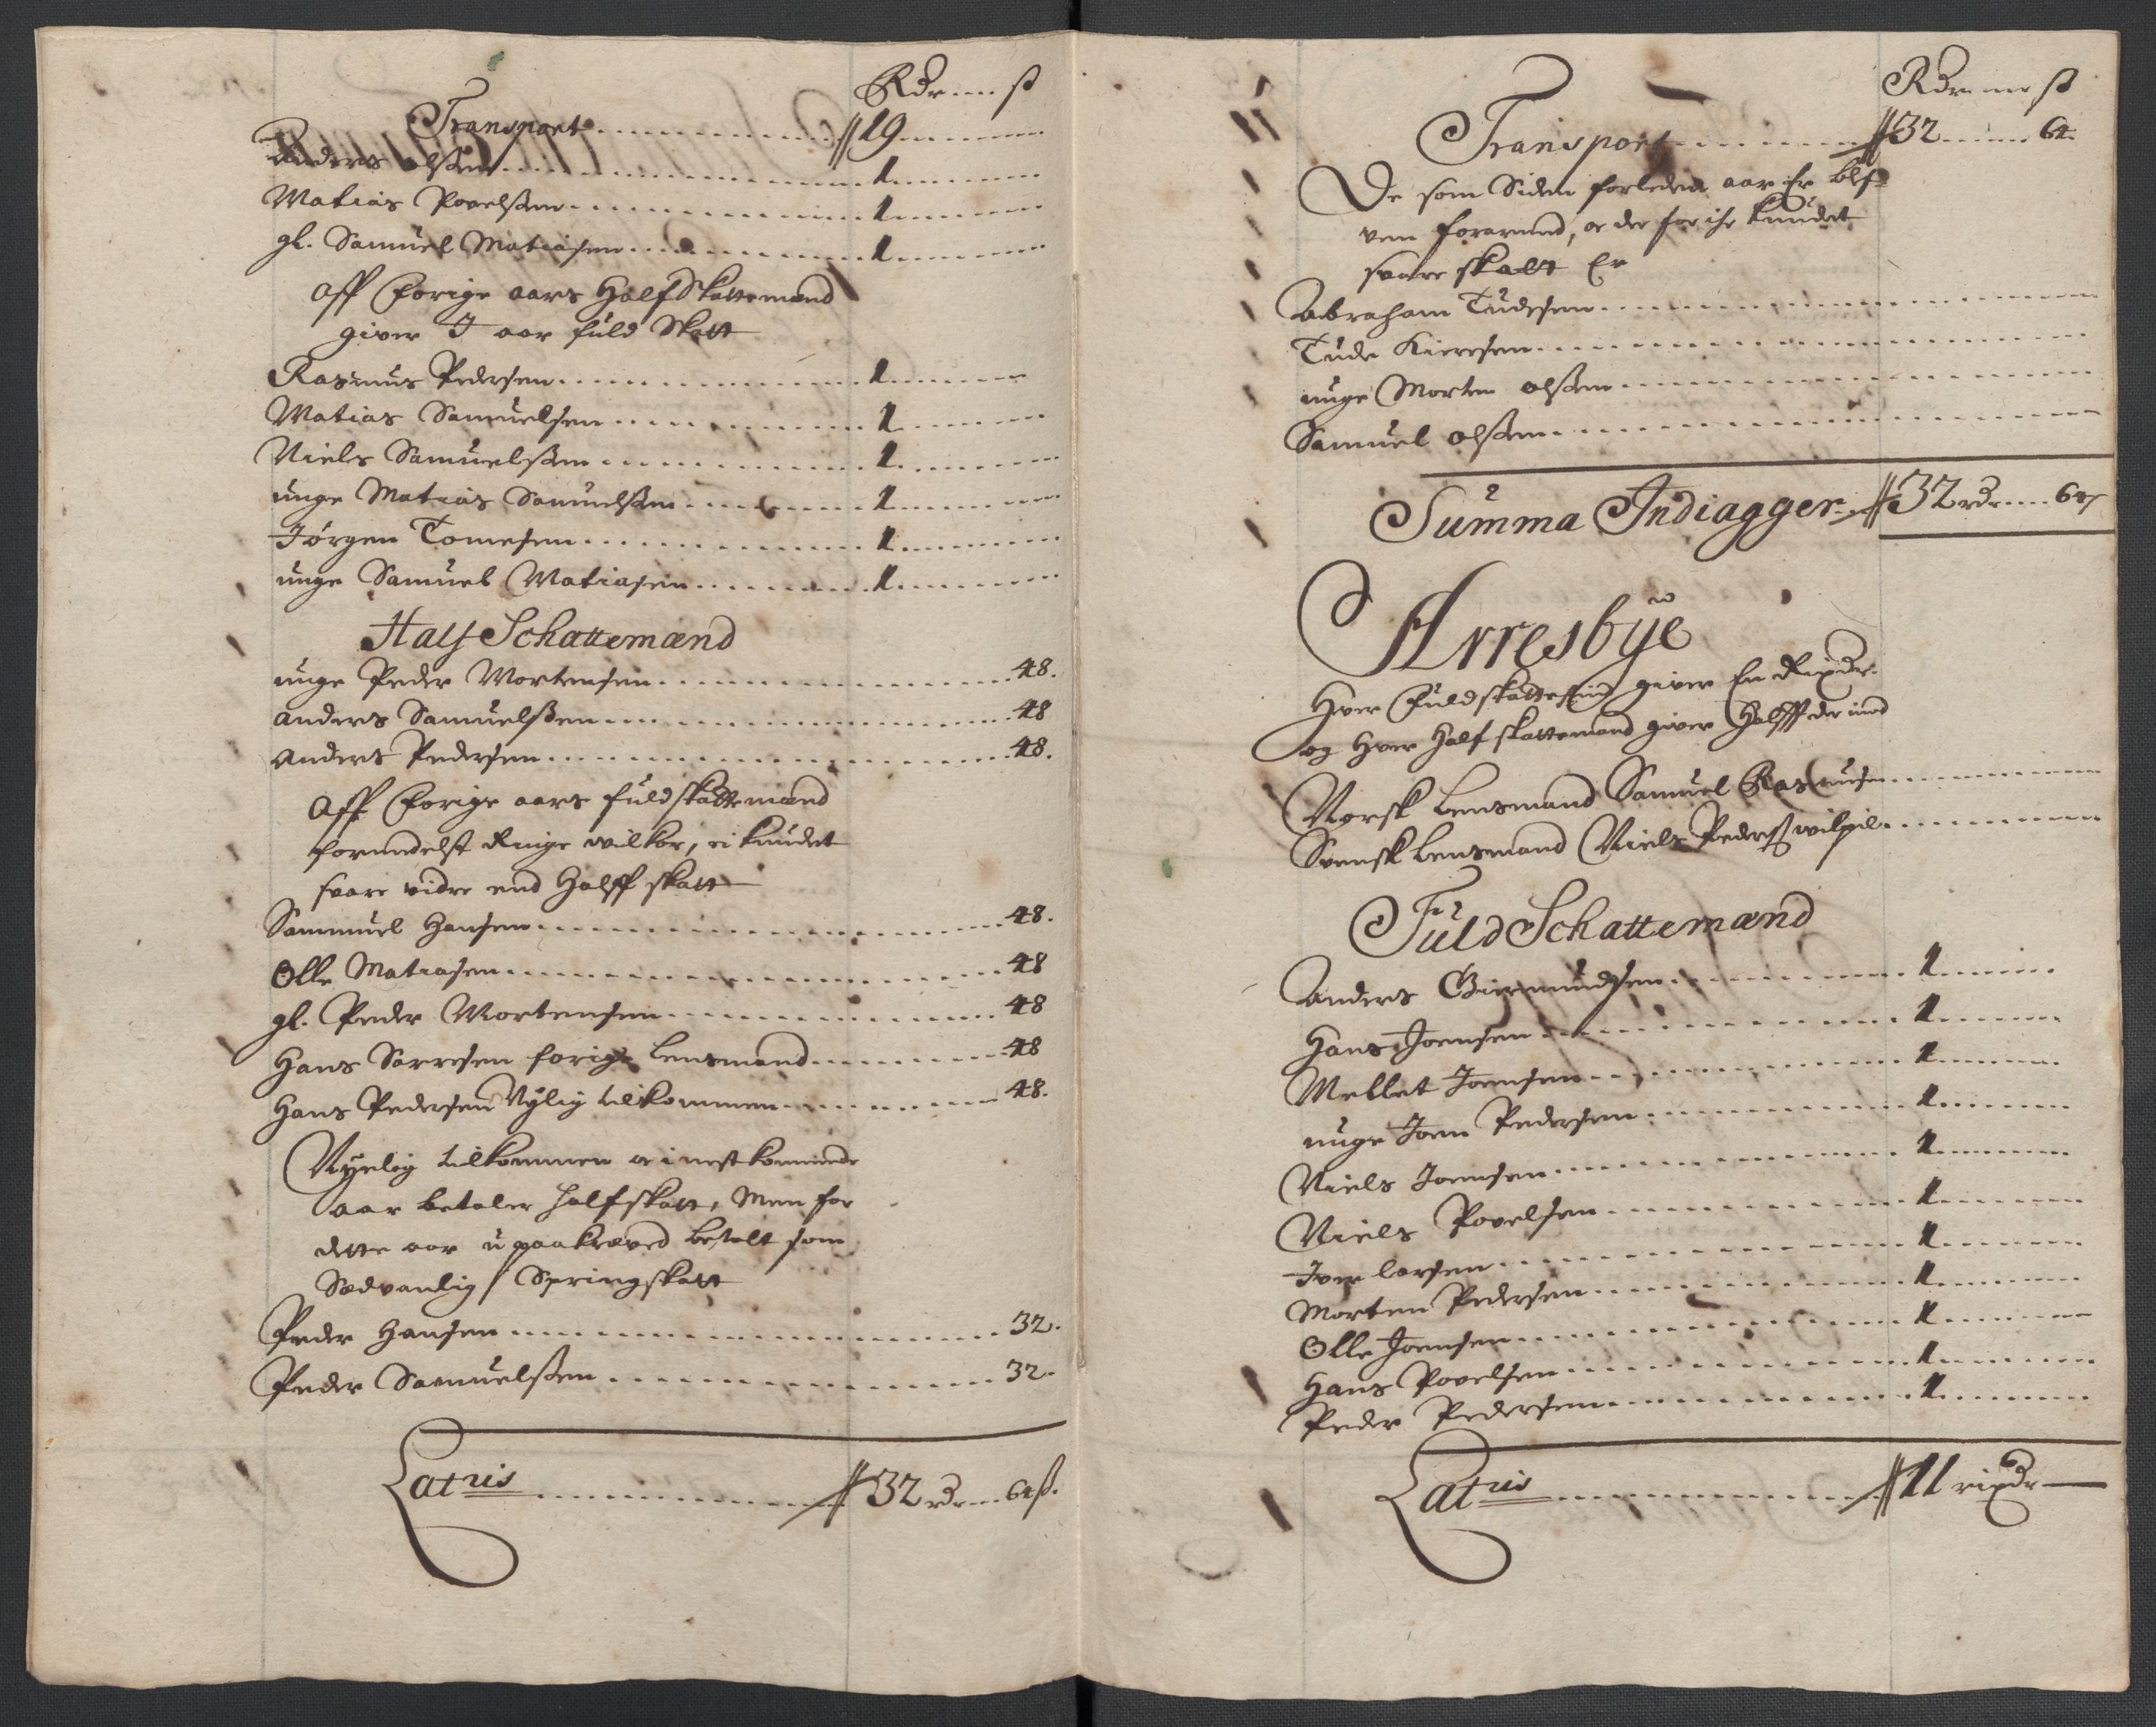 Rdr ß
Transport 19
Anders olßen 1
Matias Povelßen 1
gl. Samuel Matiasen 1
Aff Forige aars Half Skattemænd
giver I aar fuld Skatt
Rasmus Pedersen 1
Matias Samuelsen 1
Niels Samuelßen 1
unge Matias Samuelßen 1
Jørgen Tomesen 1
unge Samuel Matiasen 1
Half Schattemænd
unge Peder Mortensen 48.
Anders Samuelßen 48
Anders Pedersen 48.
Aff Forige aars fuldskattemænd
formedelst Ringe wilkor, ei kundet
svare vidre end Halff skatt
Sammuel Hansen 48.
Olle Matiasen 48
gl. Peder Mortensen 48
Hans Sarresen forige Lensmand 48
Hans Pedersen Nylig tilkommen 48.
Nyelig tilkommen oc i nestkommende
aar betaler halfskatt, Men for
dette aar u paakræved betalt som
Sædvanlig Springskatt
Peder Hansen 32.
Peder Samuelßen 32.
Latris 32 rdr 64 ß.
Rdr ß
Transport 32 64.
De som Siden forleden aar Er blef-
ven forarmed, oc derfor ike kundet
svare skatt Er
Abraham Tudesen
Tude Kieresen
unge Morten olßen
Samuel olßen
Summa Indiagger 32 rdr 64
Arresbye
Hver Fuldskattesind giver En Rixdr.
og Hver Half skattemand giver Halfft der imod
Norsk Lensmand Samuel Rasmusen
Svensk Lensmand Niels Pederß wilpil
Fuld Schattemænd
Anders Giermundsen 1
Hans Joensen 1
Mellet Joensen 1
unge Joen Pedersen 1
Niels Joensen 1
Niels Povelsen 1
Iver Larsen 1
Morten Pedersen 1
Olle Joensen 1
Hans Povelsen 1
Peder Pedersen 1
Latris 11 rixdr